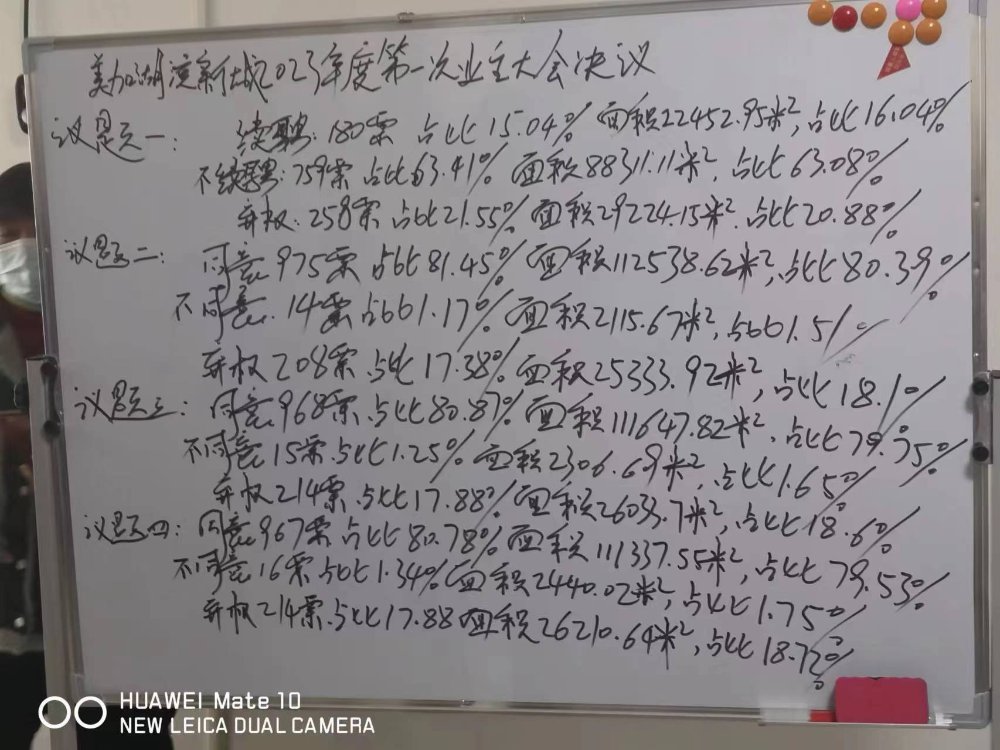 美加湖滨新城2023年度第一次业主大会决议
议题一: 续聘:180票 占比15.04% 面积22452.95米², 占比16.04%
不续聘:759票 占比63.41% 面积88311.11米², 占比63.08%
弃权:258票 占比21.55% 面积29224.15米². 占比20.88%
议题二: 同意975票 占比81.45% 面积112538.62米², 占比80.39%
不同意.14票占比1.17% 面积2115.67米², 占比1.51%
弃权208票.占比17.38% 面积25333.92米², 占比18.1%
议题三: 同意968票.占比80.87% 面积111647.82米², 占比79.75%
不同意15票.占比1.25% 面积2306.69米², 占比1.65%
弃权214票.占比17.88% 面积26033.7米², 占比18.6%
议题四: 同意967票.占比80.78% 面积111337.55米², 占比79.53%
不同意16票.占比1.34% 面积2440.02米², 占比1.75%
弃权214票.占比17.88 面积26210.64米², 占比18.72%
HUAWEI Mate 10
NEW LEICA DUAL CAMERA